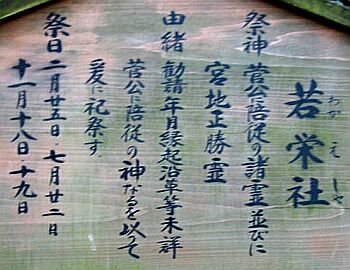 若栄社
わかえしゃ
祭神 菅公に陪従の諸霊並びに
宮地正勝霊
由緒 勧請年月縁起沿革等未詳
菅公に陪従の神なるを以って
爰に祀祭す
祭日 二月廿五日・七月廿二日
十一月十八日・十九日